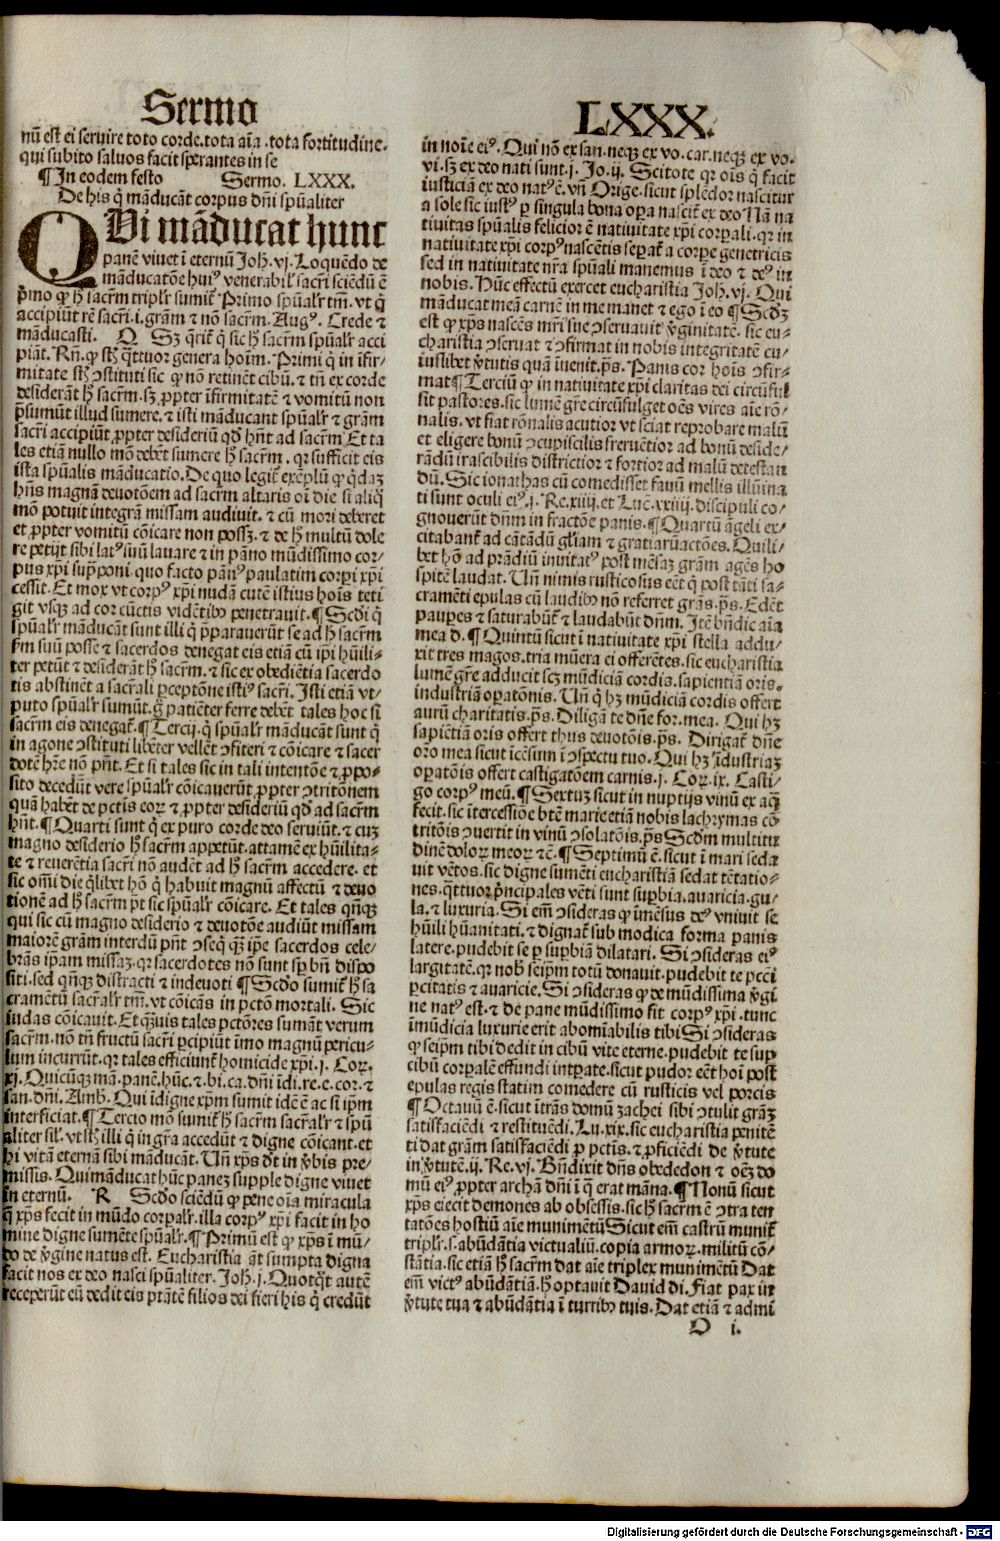 Sermo
nū est ei seruire toto corde. tota aīa. tota fortitudine.
qui subito saluos facit sperantes in se
¶In eodem festo Sermo. LXXX.
De his q̄ māducāt corpus dn̄i spūaliter
QVi māducat hunc
panē viuet ī eternū Joh̄. vj. Loquēdo de
māducatōe huiꝰ venerabilꝭ sacrī sciēdū ē
p̄mo ꝙ h̄ sacrm̄ triplr̄ sumit̄ Primo spūalr̄ tm̄. vt q̄
accipiūt rē sacrī. i. grām ⁊ nō sacrm̄. Augꝰ. Crede ⁊
māducasti. Q. Sꝫ q̄rit̄ q̄ sic h̄ sacrm̄ spūalr̄ acci
piāt. Rn̄. ꝙ st̄ q̄ttuor genera hoīm. Primi q̄ in īfir/
mitate st̄ ↄstituti sic ꝙ nō retinēt cibū. ⁊ tn̄ ex corde
desiderāt h̄ sacrm̄. sꝫ ꝓpter īfirmitatē ⁊ vomitū non
p̄sumūt illud sumere. ⁊ isti māducant spūalr̄ ⁊ grām
sacrī accipiūt ꝓpter desideriū qd̄ hn̄t ad sacrm̄ Et ta
les etiā nullo mō debēt sumere h̄ sacrm̄. qr sufficit eis
ista spūalis māducatio. De quo legit̄ exēplū ꝙ q̄daꝫ
hn̄s magnā deuotōem ad sacrm̄ altaris oī die si aliq̄
mō potuit integrā missam audiuit. ⁊ cū mori deberet
et ꝓpter vomitū cōicare non possꝫ. ⁊ de h̄ multū dole
re petijt sibi latꝰ suū lauare ⁊ in pāno mūdissimo cor/
pus xp̄i sup̄poni. quo facto pānꝰ paulatim corpi xp̄i
cessit. Et mox vt corpꝰ xp̄i nudā cutē istius hoīs teti
git vsqꝫ ad cor cūctis vidētibꝰ penetrauit. ¶Scd̄i q̄
spūalr̄ māducāt sunt illi q̄ p̄parauerūt se ad h̄ sacrm̄
fm̄ suū posse ⁊ sacerdos denegat eis etiā cū ipī hūili/
ter petūt ⁊ desiderāt h̄ sacrm̄. ⁊ sic ex obediētia sacerdo
tis abstinēt a sacrali ꝑceptōne istiꝰ sacrī. Isti etiā vt/
puto spūalr̄ sumūt. q̄ patiēter ferre debēt tales hoc si
sacrm̄ eis denegat̄. ¶Tercij. q̄ spūalr̄ māducāt sunt q̄
in agone ↄstituti libēter vellēt ↄfiteri ⁊ cōicare ⁊ sacer
dotē hr̄e nō pn̄t. Et si tales sic in tali intentōe ⁊ ꝓpo/
sito decedūt vere spūalr̄ cōicauerūt ꝓpter ↄtritōnem
quā habēt de pctis eoꝝ ⁊ ꝓpter desideriū qd̄ ad sacrm̄
hn̄t. ¶Quarti sunt q̄ ex puro corde deo seruiūt. ⁊ cuꝫ
magno desiderio h̄ sacrm̄ appetūt. attamē ex hūilita/
te ⁊ reuerētia sacrī nō audēt ad h̄ sacrm̄ accedere. et
sic omī die q̄libet hō q̄ habuit magnū affectū ⁊ deuo
tionē ad h̄ sacrm̄ p̄t sic spūalr̄ cōicare. Et tales qn̄qꝫ
qui sic cū magno desiderio ⁊ deuotōe audiūt missam
maiorē grām interdū pn̄t ↄseq̄ qꝫ ip̄e sacerdos cele/
brās ipām missaꝫ. qr sacerdotes nō sunt sp̄ bn̄ dispo
siti. sed qn̄qꝫ distracti ⁊ indeuoti ¶Scd̄o sumit̄ h̄ sa
cramētū sacralr̄ tm̄. vt cōicās in pctō mortali. Sic
iudas cōicauit. Et qꝫuis tales pctōres sumāt verum
sacrm̄. nō tn̄ fructū sacrī ꝑcipiūt īmo magnū pericu/
lum incurrūt. qr tales efficiunt̄ homicide xp̄i. j. Coꝝ.
xj. Quicūqꝫ mā. panē. hūc. ⁊. bi. ca. dn̄i īdi. re. e. cor. ⁊
san. dn̄i. Amb̄. Qui īdigne xp̄m sumit idē ē ac si ip̄m
interficiat. ¶Tercio mō sumit̄ h̄ sacrm̄ sacralr̄ ⁊ spū
aliter sil̄. vt st̄ illi q̄ in gr̄a accedūt ⁊ digne cōicant. et
hi vitā eternā sibi māducāt. Un̄ xp̄s dt̄ in v̄bis pre/
missis. Qui māducat hūc paneꝫ supple digne viuet
in eternū. R Scd̄o sciēdū ꝙ pene oīa miracula
q̄ xp̄s fecit in mūdo corpalr̄. illa corpꝰ xp̄i facit in ho
mine digne sumēte spūalr̄. ¶Primū est ꝙ xp̄s ī mū/
do de v̄gine natus est. Eucharistia aūt sumpta digna
facit nos ex deo nasci spūaliter. Joh̄. j. Quotqt̄ autē
receperūt eū dedit eis ptātē filios dei fieri his q̄ credūt
LXXX.
in noīe eiꝰ. Qui nō ex san. neqꝫ ex vo. car. neqꝫ ex vo.
vi. sꝫ ex deo nati sunt. j. Jo. ij. Scitote qr oīs q̄ facit
iusticiā ex deo natꝰ ē. vn̄ Orige. sicut splēdor nascitur
a sole sic iustꝰ ꝑ singula bona oꝑa nascit̄ ex deo Nā na
tiuitas spūalis felicior ē natiuitate xp̄i corꝑali. qr in
natiuitate xp̄i corpꝰ nascētis sepat̄ a corpe genetricis
sed in natiuitate nr̄a spūali manemus ī deo ⁊ deꝰ in
nobis. Hūc effectū exercet eucharistia Joh̄. vj. Qui
māducat meā carnē in me manet ⁊ ego ī eo ¶Scd̄ꝫ
est ꝙ xp̄s nascēs mr̄i sue ↄseruauit v̄ginitatē. sic eu/
charistia ↄseruat ⁊ ↄfirmat in nobis integritatē cu/
iuslibet v̄tutis quā īuenit. p̄s. Panis cor hoīs ↄfir/
mat ¶Terciū ꝙ in natiuitate xp̄i claritas dei circūful
sit pastores. sic lumē gr̄e circūfulget oēs vires aīe rō/
nalis. vt fiat rōnalis acutior vt sciat reprobare malū
et eligere bonū ↄcupiscilis feruētior ad bonū deside/
rādū irascibilis districtior ⁊ fortior ad malū detestan
dū. Sic ionathas cū comedisset fauū mellis illūīna
ti sunt oculi eiꝰ. j. Re. xiiij. et Luē. xxiiij. discipuli co/
gnouerūt dn̄m in fractōe panis. ¶Quartū āgeli ex/
citabant̄ ad cātādū gl̄iam ⁊ gratiarūactōes. Quili/
bet hō ad prādiū inuitatꝰ post mēsaꝫ grām agēs ho
spitē laudat. Un̄ nimis rusticosus eēt q̄ post tāti sa/
cramēti epulas cū laudibꝰ nō referret grās. p̄s. Edēt
pauꝑes ⁊ saturabūt̄ ⁊ laudabūt dn̄m. Itē bn̄dic aīa
mea d. ¶Quintū sicut ī natiuitate xp̄i stella addu/
xit tres magos. tria mūera ei offerētes. sic eucharistia
lumē gr̄e adducit scꝫ mūdiciā cordia. sapientiā oris.
industriā oꝑatōnis. Un̄ q̄ hꝫ mūdiciā cordis offert
aurū charitatis. p̄s. Diligā te dn̄e for. mea. Qui hꝫ
sapiētiā oris offert thus deuotōis. p̄s. Dirigat̄ dn̄e
oro mea sicut īcēsum ī ↄspectu tuo. Qui hꝫ īdustriaꝫ
oꝑatōis offert castigatōem carnis. j. Coꝝ. ix. Casti/
go corpꝰ meū. ¶Sextuꝫ sicut in nuptijs vinū ex aq̄
fecit. sic ītercessiōe btē marie etiā nobis lachrymas cō
tritōis ↄuertit in vinū ↄsolatōis. p̄s Scd̄m multitu
dinē doloꝝ meoꝝ ⁊c̄. ¶Septimū ē. sicut ī mari seda
uit vētos. sic digne sumēti eucharistiā sedat tētatio/
nes. q̄ttuor p̄ncipales vēti sunt supbia. auaricia. gu/
la. ⁊ luxuria. Si em̄ ↄsideras ꝙ īmēsus deꝰ vniuit se
hūili hūanitati. ⁊ dignat̄ sub modica forma panis
latere. pudebit se ꝑ supbiā dilatari. Si ↄsideras eiꝰ
largitatē. qr nob̄ seip̄m totū donauit. pudebit te pcēi
ꝑcitatis ⁊ auaricie. Si ↄsideras ꝙ de mūdissima v̄gi
ne natꝰ est. ⁊ de pane mūdissimo fit corpꝰ xp̄i. tunc
īmūdicia luxurie erit abomīabilis tibi Si ↄsideras
ꝙ seip̄m tibi dedit in cibū vite eterne. pudebit te sup
cibū corꝑalē effundi intꝑate. sicut pudor eēt hoī post
epulas regis statim comedere cū rusticis vel porcis
¶Octauū ē. sicut ītrās domū zachei sibi ↄtulit grāꝫ
satisfaciēdi ⁊ restituēdi. Lu. xix. sic eucharistia penitē
ti dat grām satisfaciēdi ꝑ pctis. ⁊ ꝓficiēdi de v̄tute
in v̄tutē. ij. Re. vj. Bn̄dixit dn̄s obededon ⁊ oēꝫ do
mū eiꝰ ꝓpter archā dn̄i ī q̄ erat māna. ¶Nonū sicut
xp̄s eiecit demones ab obsessis. sic h̄ sacrm̄ ē ↄtra ten
tatōes hostiū aīe munimētū Sicut em̄ castrū munit̄
triplr̄. s. abūdātia victualiū. copia armoꝝ. militū cō/
stātia. sic etiā h̄ sacrm̄ dat aīe triplex munimētū Dat
em̄ victꝰ abūdātiā. h̄ optauit Dauid di. Fiat pax in
v̄tute tua ⁊ abūdātia ī turribꝰ tuis. Dat etiā ⁊ admi
O i.
Digitalisierung gefördert durch die Deutsche Forschungsgemeinschaft - DFG